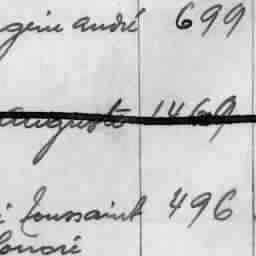 gène andré 699
auguste 1469
i Toussaint 496